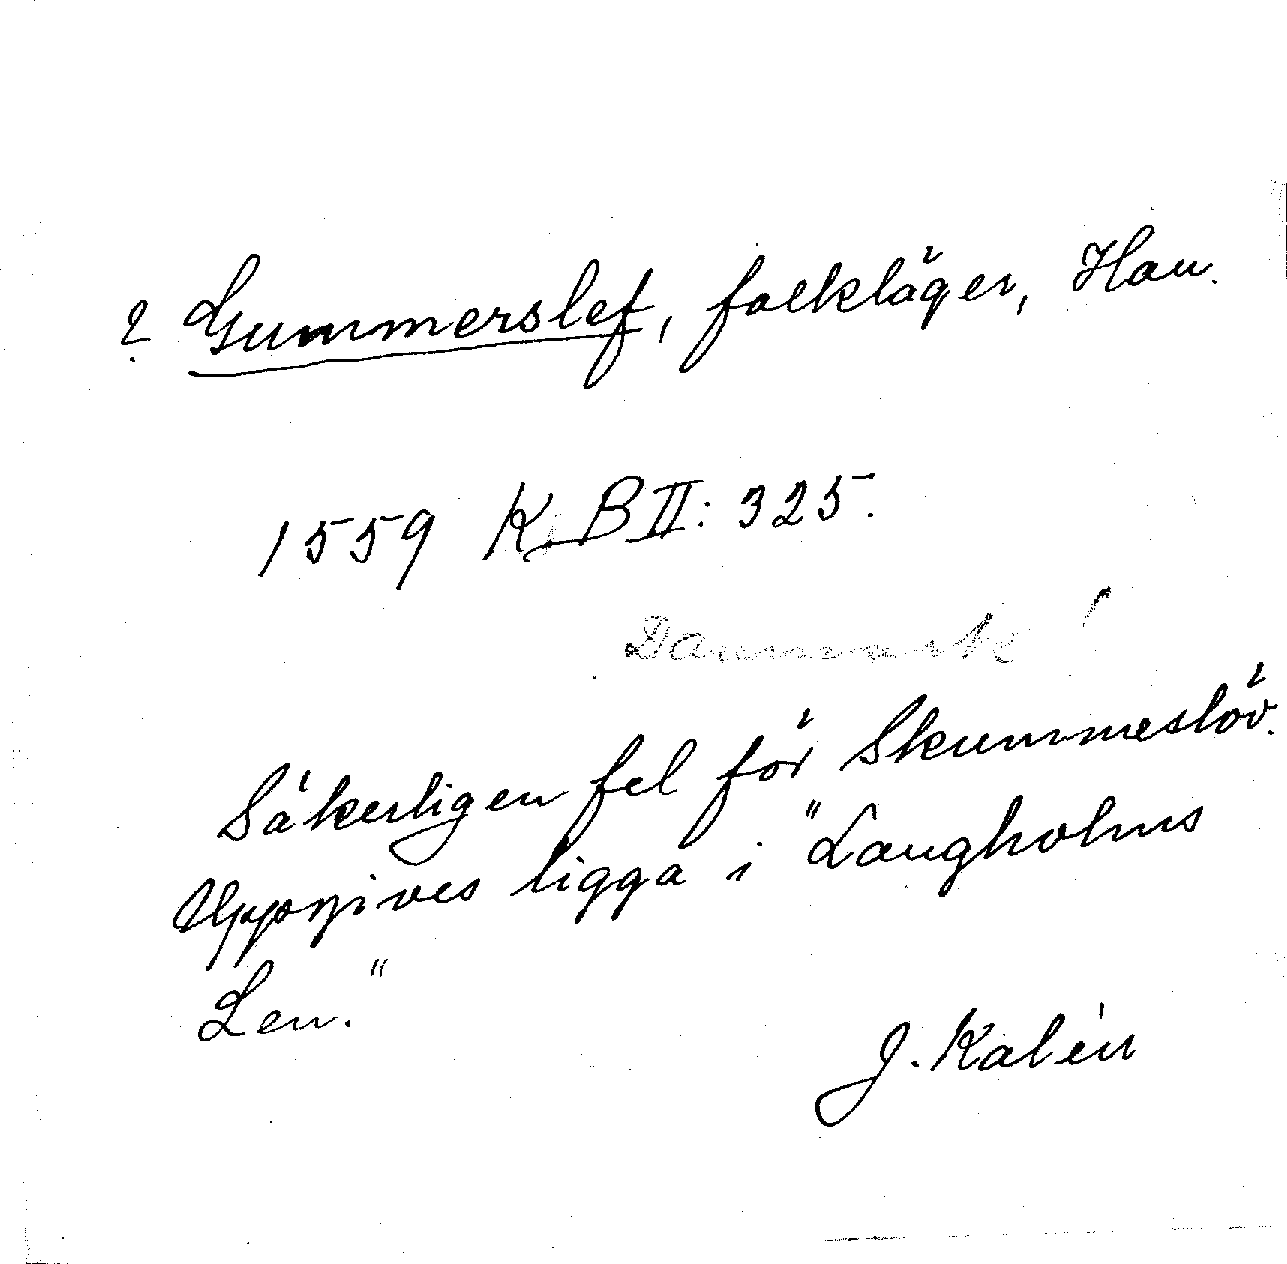 ? Gummerslef, folkläger, Hall.
1559 K. B II: 325.
Danmark!
Säkerligen fel för Skummeslöv.
Uppgives ligga i "Laugholms
Len."
J. Kalén